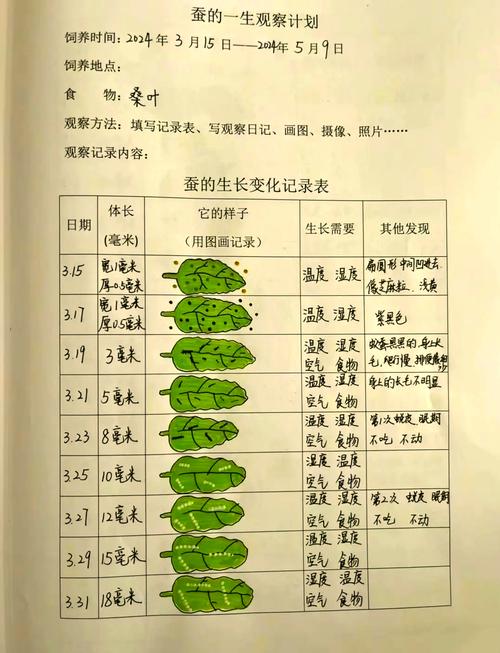 蚕的一生观察计划
饲养时间：2024年3月15日——2024年5月9日
饲养地点：
食 物：桑叶
观察方法：填写记录表、写观察日记、画图、摄像、照片……
观察记录内容：
蚕的生长变化记录表
日期 体长（毫米） 它的样子（用图画记录） 生长需要 其他发现
3.15 宽1毫米 厚0.5毫米 温度 湿度 扁圆形 中间凹进去 像芝麻粒、浅黄
3.17 宽1毫米 厚0.5毫米 温度 湿度 紫黑色
3.19 3毫米 温度 湿度 空气 食物 蚁蚕黑黑的，身上长毛，爬行慢，
3.21 5毫米 温度 湿度 空气 食物 身上的长毛不明显
3.23 8毫米 温度 湿度 空气 食物 第1次 蜕皮 眠期 不吃 不动
3.25 10毫米 湿度 温度 空气 食物
3.27 12毫米 温度 湿度 空气 食物 第2次 蜕皮 眠期 不吃 不动
3.29 15毫米 温度 湿度 空气 食物
3.31 18毫米 湿度 温度 空气 食物